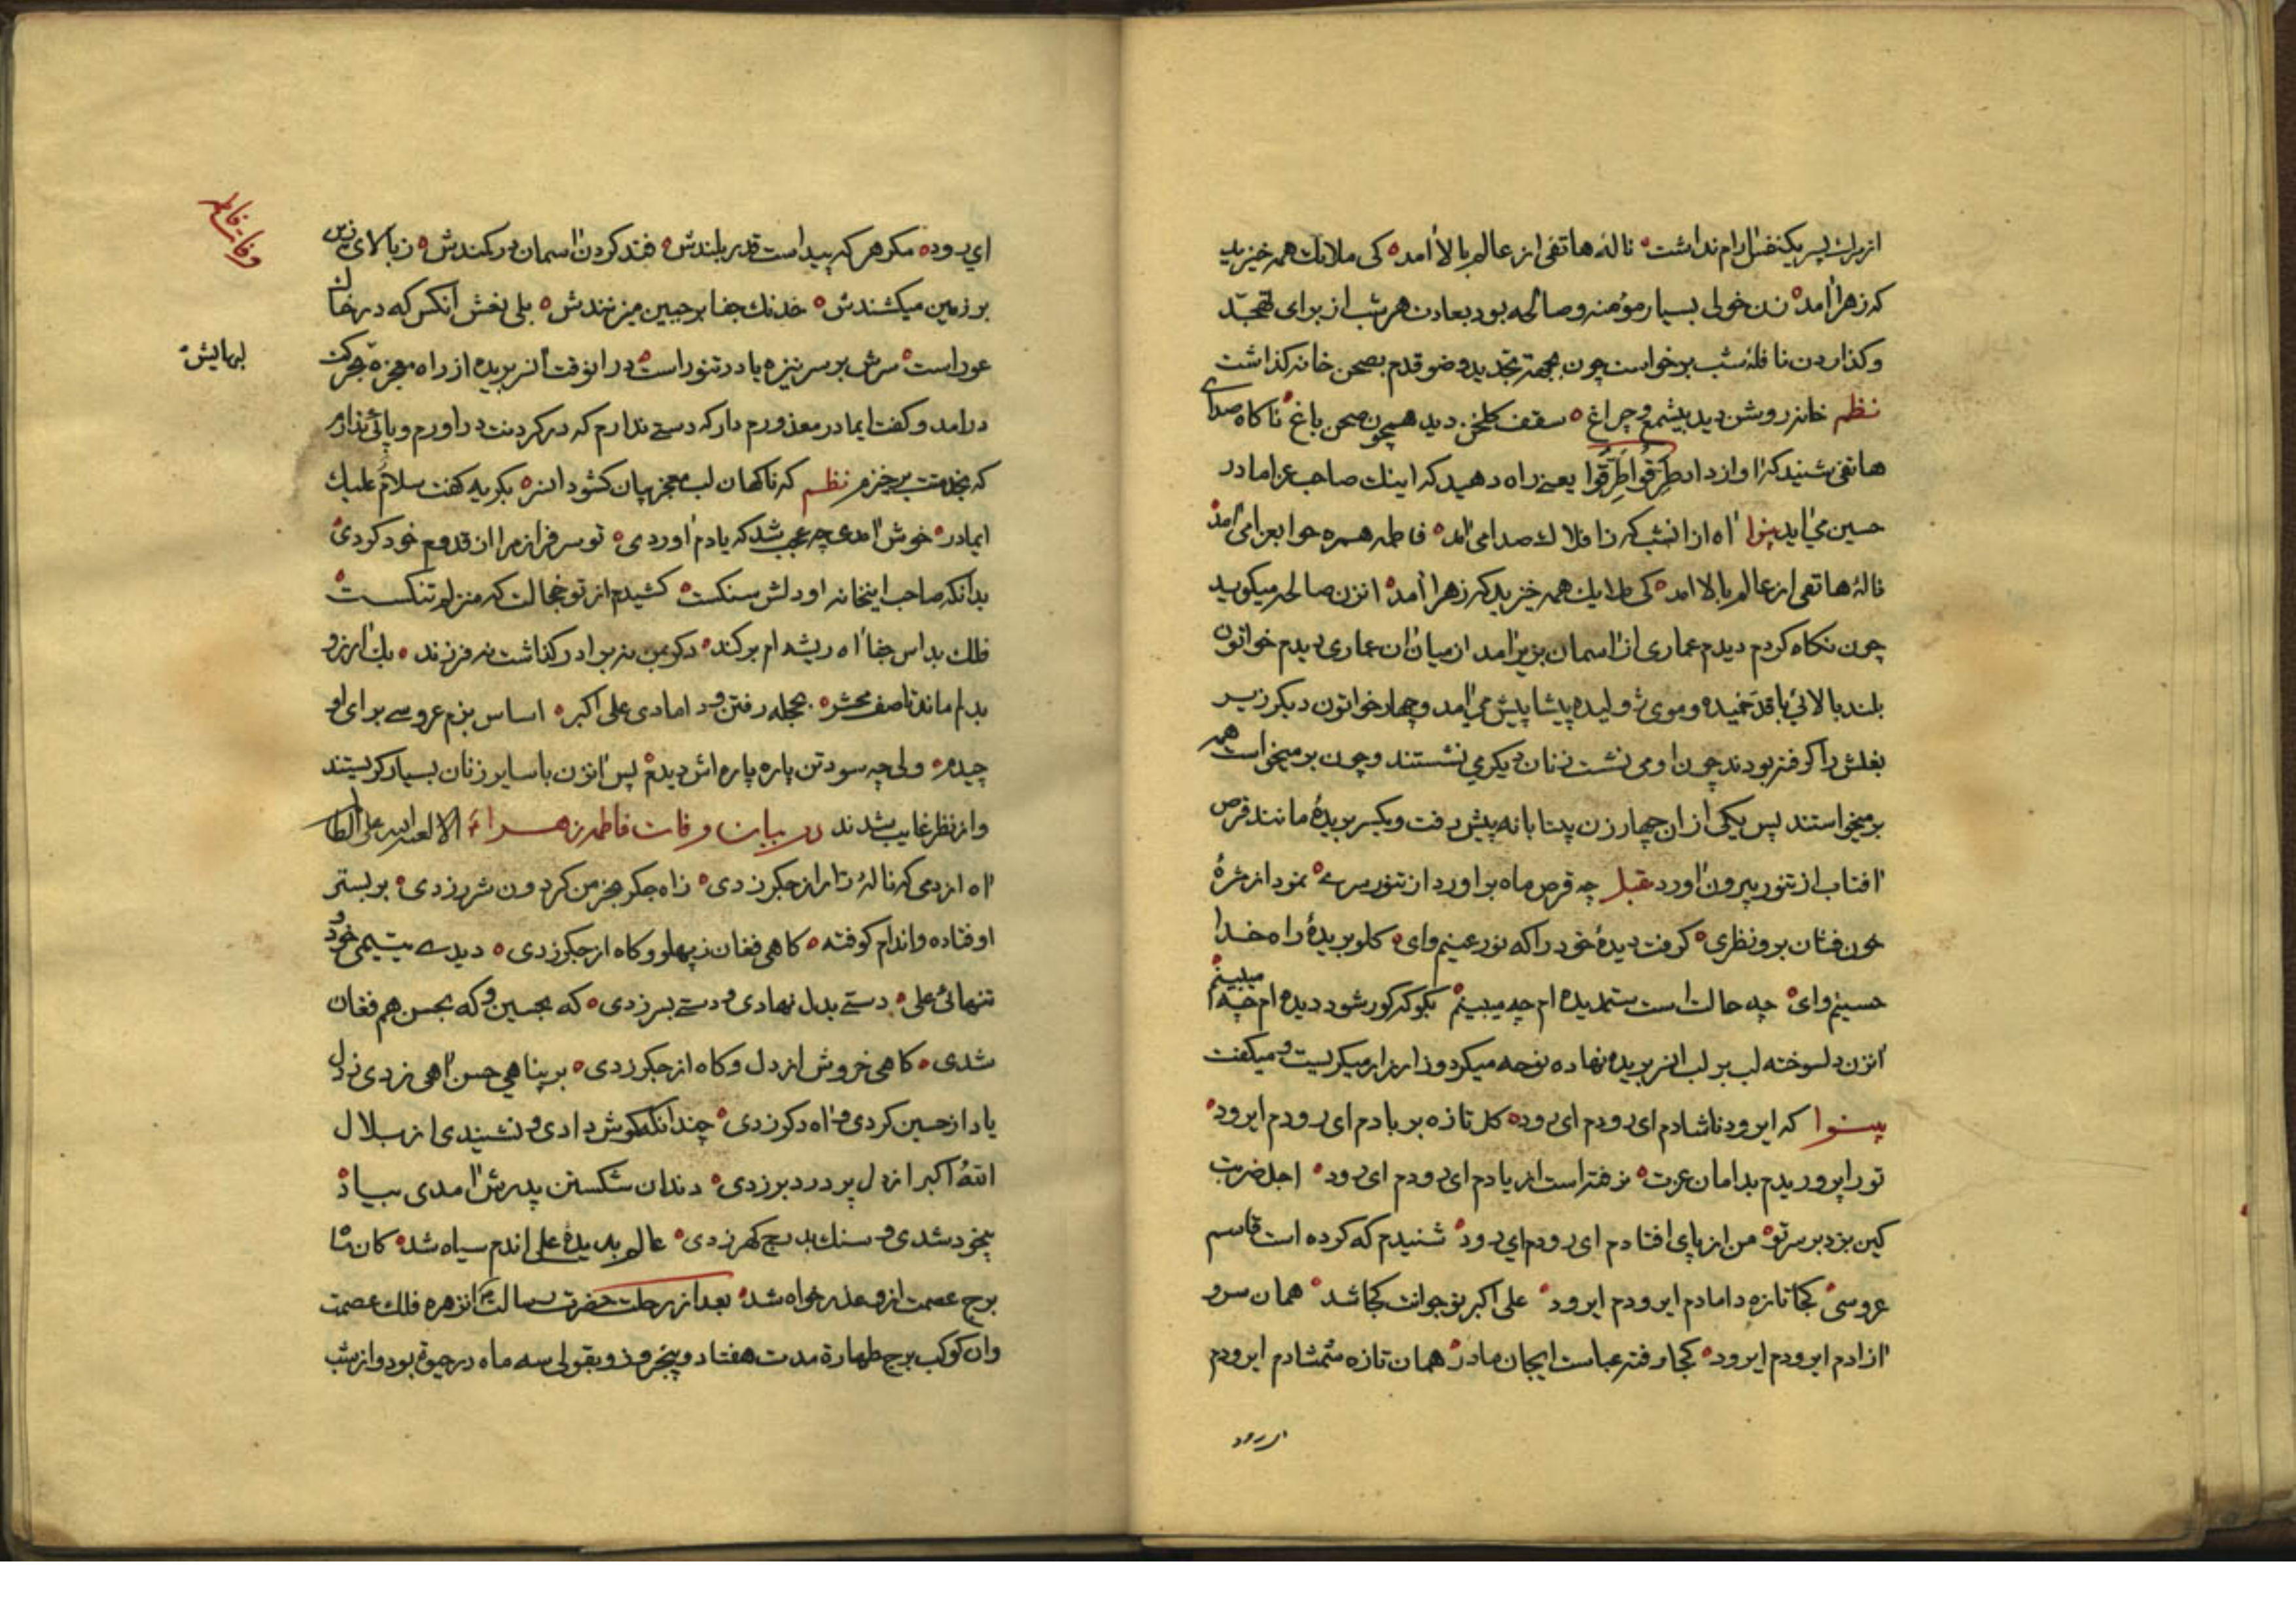 از برات پسر یکنفس آرام نداشت نالهٔ هاتفی از عالم بالا آمد کی ملایک همه خیزید
که زهرا آمد زن خولی بسیار مؤمنه و صالحه بود بعادت هر شب از برای تهجّد
و کذاردن نافلهٔ شب برخواست چون بجهة تجدید وضو قدم بصحن خانه کذاشت
نظم خانه روشن دید بیشمع و چراغ سقف کلخن دید همچون صحن باغ ناکاه صدای
هاتفی شنید که آواز داد طرّقوا طرّقوا یعنی راه دهید که اینک صاحب عزا مادر
حسین می‌آید آه از انشب که ز افلاک صدا می‌آمد فاطمه همره حوا بعزا می‌آمد
نالهٔ هاتفی از عالم بالا آمد کی ملایک همه خیزید که زهرا آمد انزن صالحه میکوید
چون نکاه کردم دیدم عماری از آسمان بزیر آمد از میان آن عماری دیدم خواتون
بلند بالائی با قد خمیده و موی ژولیده پیشاپیش می‌آمد و چهار خواتون دیکر زیر
بغلش را کرفته بودند چون او می نشست زنان دیکری نشستند و چون برمیخواست همه
برمیخواستند پس یکی از ان چهار زن بیتابانه پیش رفت و یکسر بریدهٔ مانند قرص
آفتاب از تنور بیرون آورد مقبل چه قرص ماه براورد از تنور سری نمود از مژهٔ
خون فشان برو نظری کرفت دیدهٔ خود را که نور عینم وای کلو بریدهٔ راه خدا
حسینم وای چه حالت است ستمدیده ام چه میبینم بکو که کور شود دیده ام چه میبینم
آنزن دلسوخته لب بر لب انسر بریده نهاده نوحه میکرد و زار زار میکریست و میکفت
که ایرود ناشادم ای رودم ای رود کل تازه بر بادم ای رودم ایرود
تو را پروریدم بدامان عزت نرفته است از یادم ای رودم ای رود اجل ضربت
کین بزد بر سر تو من از پای افتادم ای رودم ای رود شنیدم که کرده است قاسم
عروسی کجا تازه دامادم ایرودم ایرود علی اکبر نوجوانت کجا شد همان سرو
آزادم ایرودم ایرود کجا رفته عباست ایجان مادر همان تازه شمشادم ایرودم
ای رود
وفات فاطمه
ای رود مکر هر که پیداست قدر بلندش فتد کردن آسمان در کمندش ز بالای زین
بر زمین میکشندش خدنک جفا بر جبین میزنندش بلی نعش انکس که در خاک
عور است سرش بر سر نیزه یا در تنور است در انوقت آنسر بریده از راه معجزه بحرکت
درامد و کفت ایمادر معذورم دار که دستی ندارم که در کردنت دراورم و پائی ندارم
لبهایش
که بخدمتت برخیزم نظم که ناکهان لب معجز بیان کشود انسر بکریه کفت سلام علیک
ایمادر خوش آمدی چه عجب شد که یادم آوردی تو سرفراز مرا از قدوم خود کردی
بدانکه صاحب اینخانه او دلش سنکست کشیدم از تو خجالت که منزلم تنکست
فلک بداس جفا آه ریشه ام برکند دکر بمن نه برادر کذاشت نه فرزند یک آرزو
بدلم ماند تا صف محشر بحجله رفتن و دامادی علی اکبر اساس بزم عروسی برای او
چیدم ولی چه سود تن پاره پاره اش دیدم پس آنزن با سایر زنان بسیار کریستند
و از نظر غایب شدند در بیان وفات فاطمه زهراء الا لعنه الله علی الظا
آه از دمی که نالهٔ زار از جکر زدی ز آه جکر بخرمن کردون شرر زدی بر بستر
اوفتاده و اندام کوفته کاهی فغان ز پهلو و کاه از جکر زدی دیدی یتیمی خود و
تنهائی علی دستی بدل نهادی و دستی بسر زدی که بحسین و که بحسن هم فغان
شدی کاهی خروش از دل و کاه از جکر زدی بر بیناهی حسن آهی زدی ز دل
یاد از حسین کردی و آه دکر زدی چندانکه کوش دادی و نشیندی از بلال
الله اکبر از دل پر درد بر زدی دندان شکستن پدرش آمدی بیاد
بیخود شدی و سنک بدرج کهر زدی عالم بدیدهٔ علی اندم سیاه شد کان
برج عصمت ازو عذر خواه شد بعد از رحلت حضرت رسالت آنزهره فلک عصمت
وان کوکب برج طهارة مدت هفتاد و پنجروز و بقولی سه ماه در حیوة بود و از شب